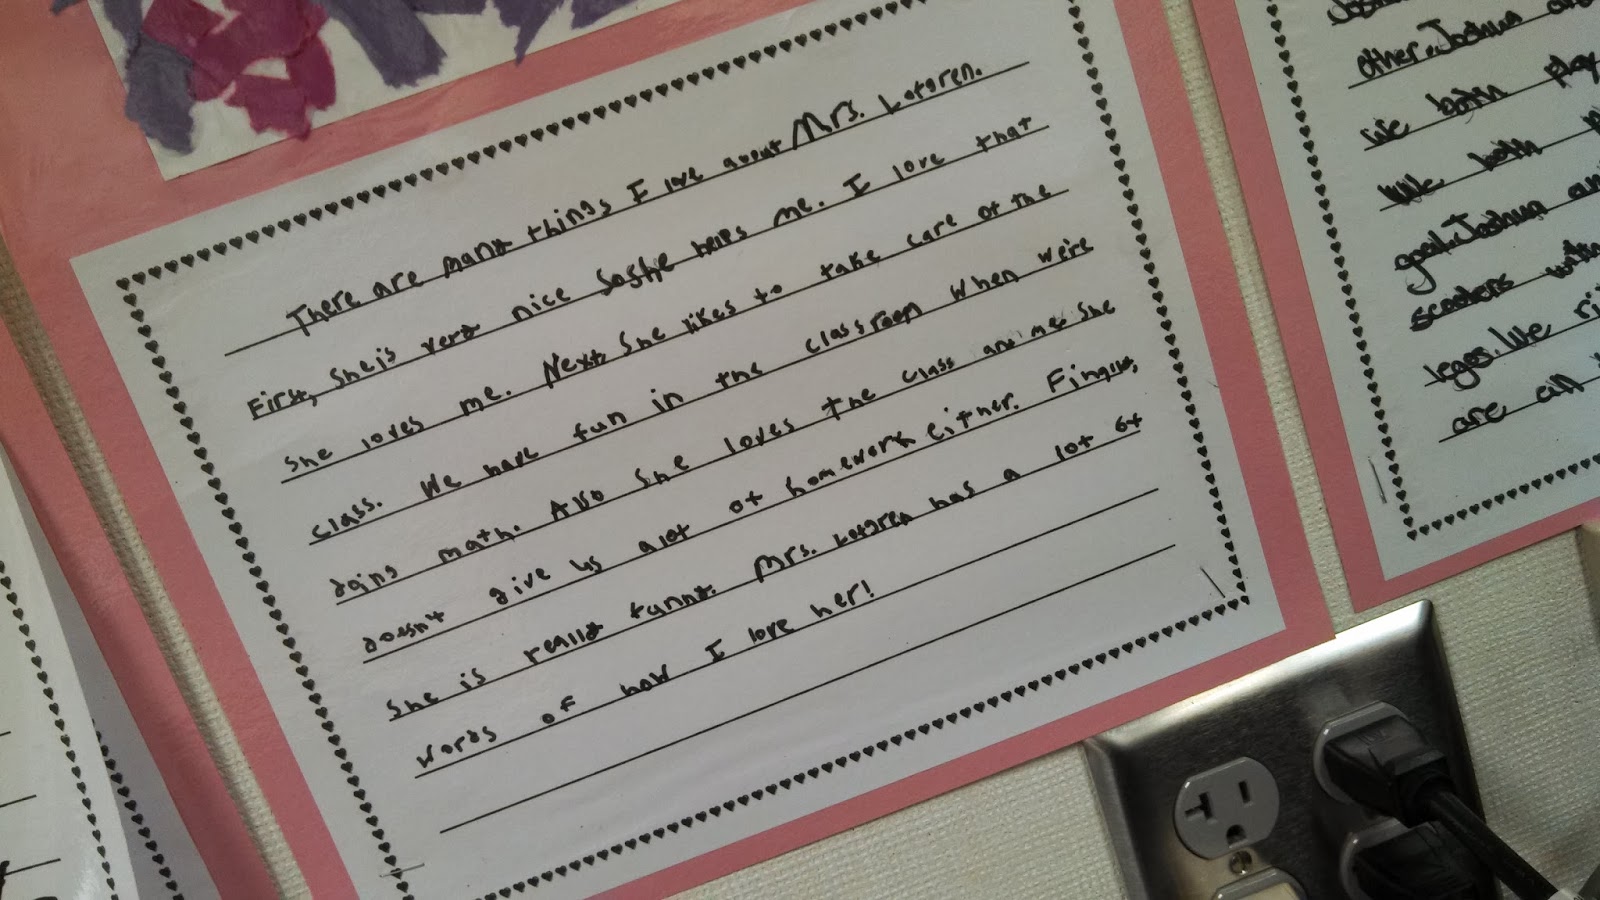 There are many things I love about Mrs. Lofgren.
First, she is very nice so she helps me. I love that
she loves me. Next, she likes to take care of the
class. We have fun in the classroom when we're
doing math. Also she loves the class and me. She
doesn't give us alot of homework either. Finally,
she is really funny. Mrs. Lofgren has a lot of
words of how I love her!
other. Joshua
We both play
We both
goal. Joshua an
scooters with
legos. We ri
are all